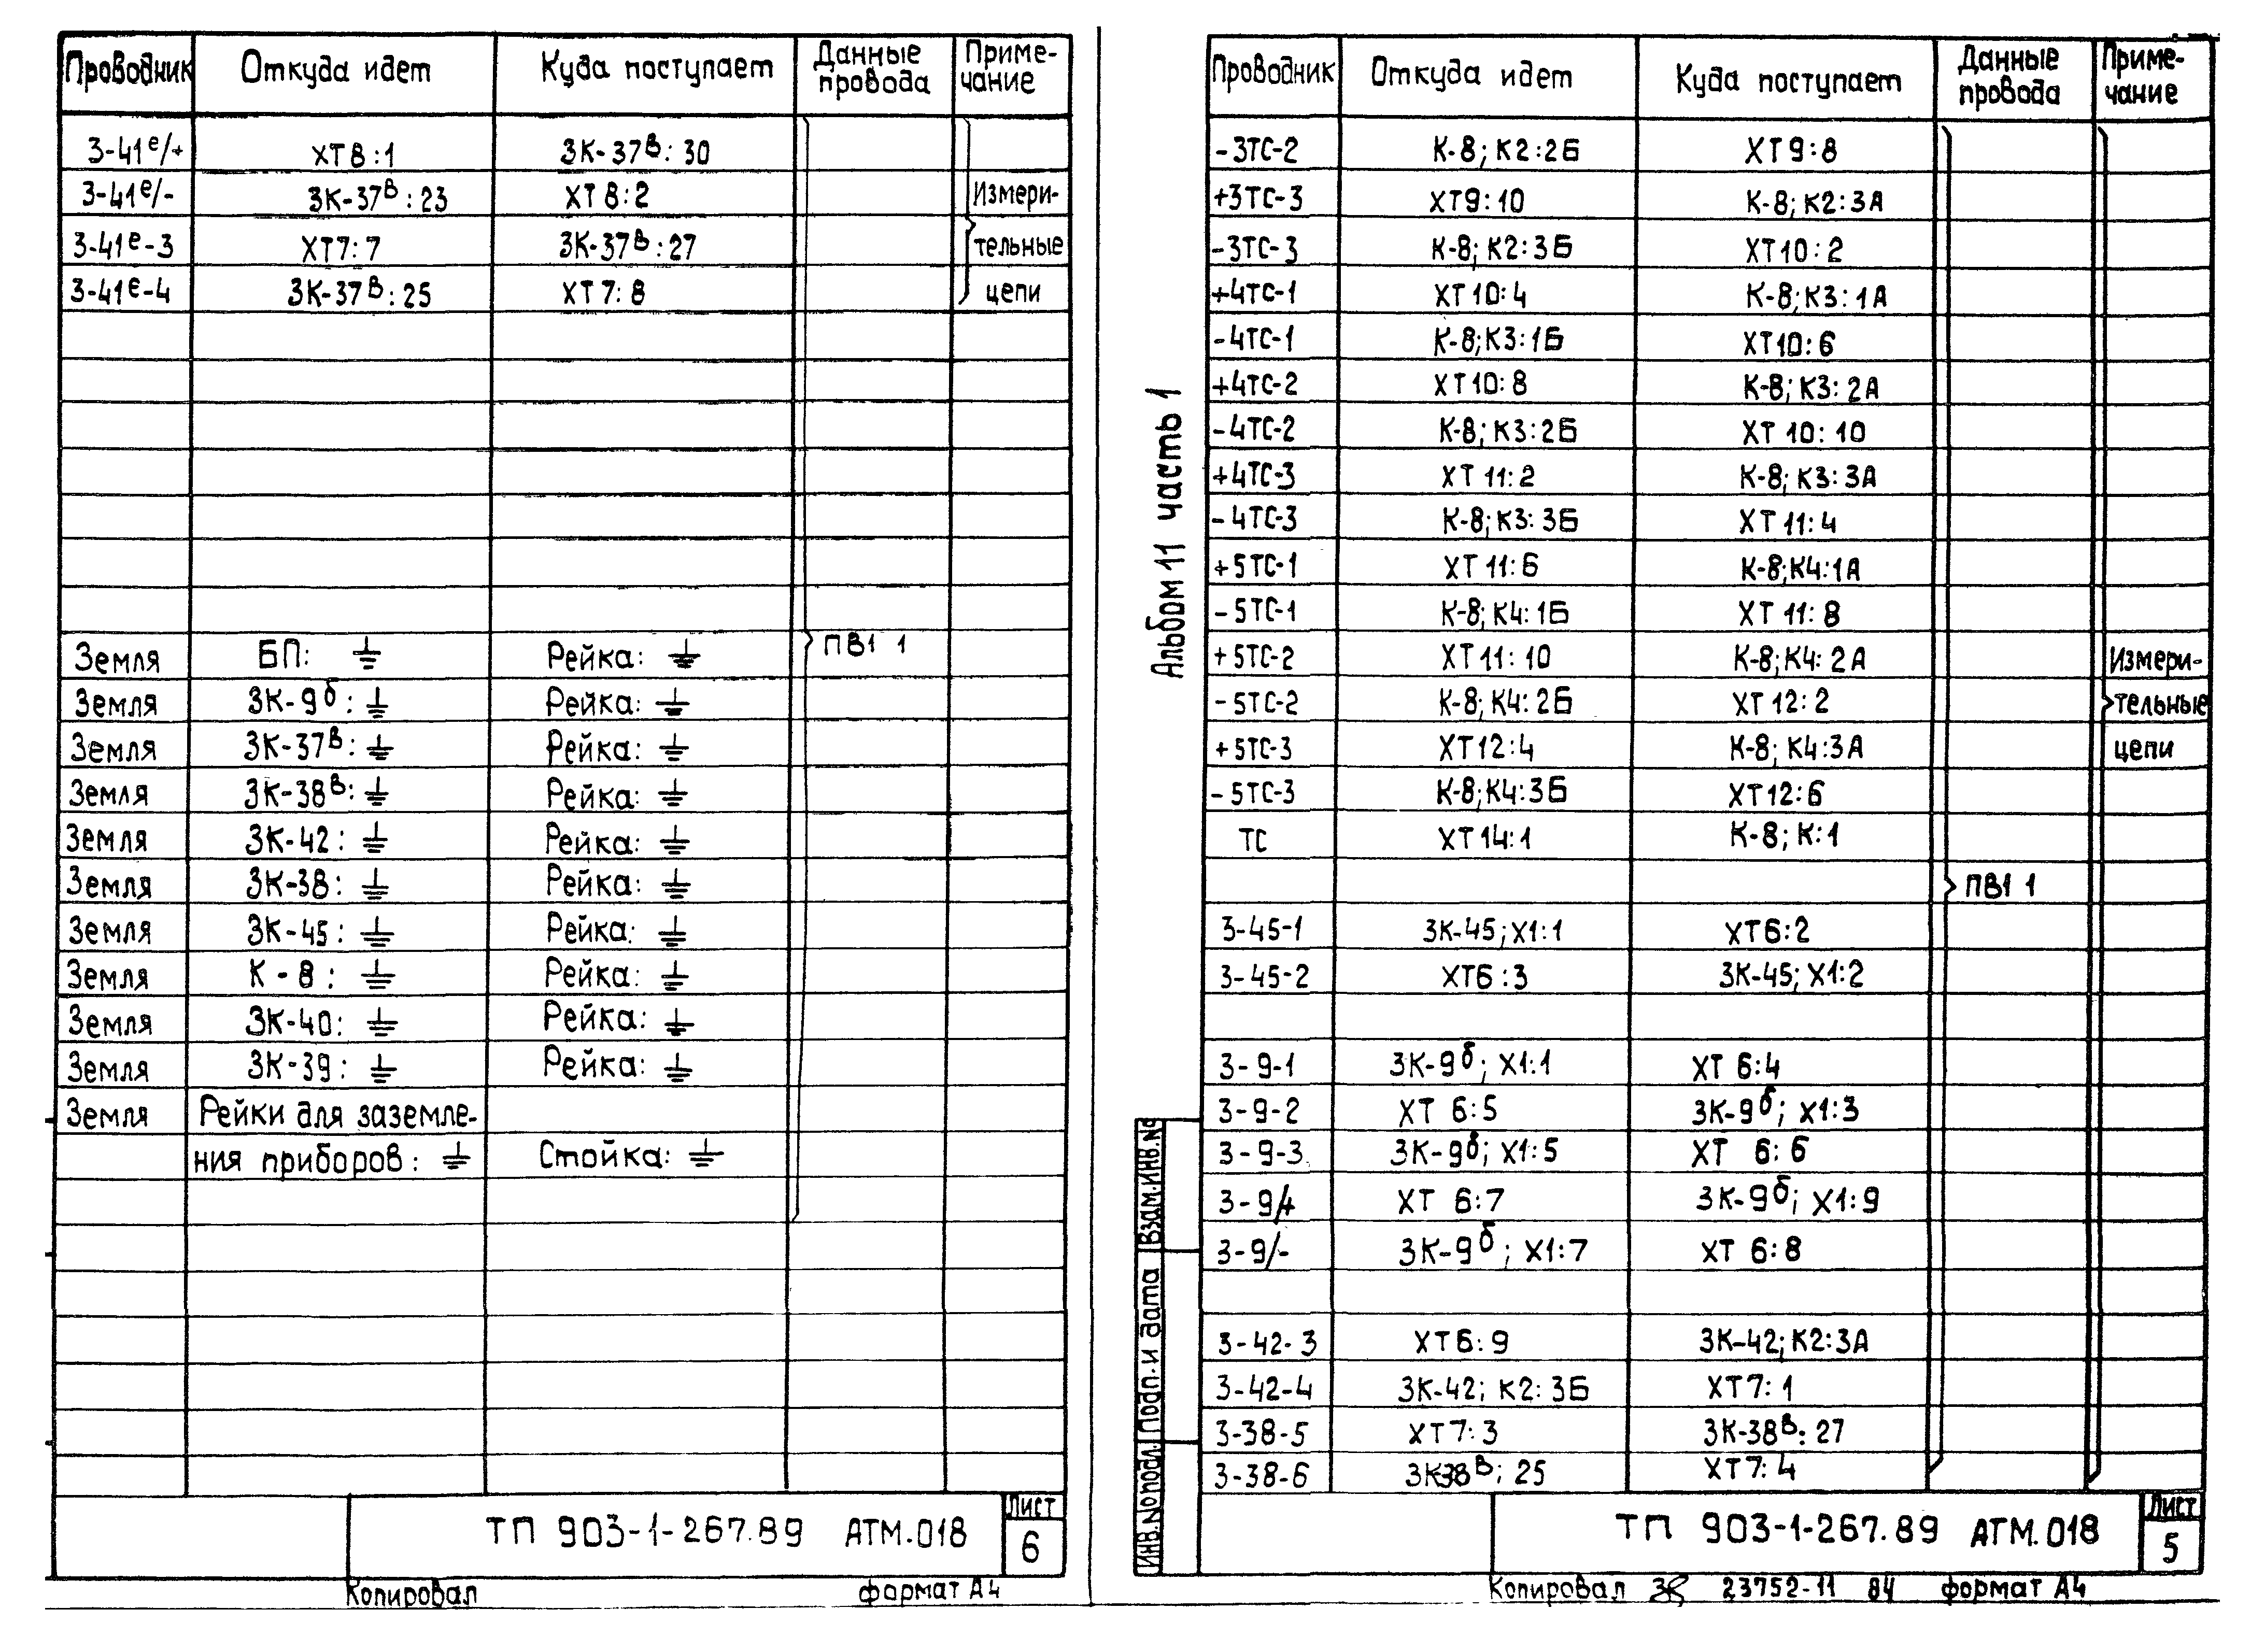 Проводник Откуда идет Куда поступает Данные провода Примечание
3-41е/+ ХТ8:1 3К-37В:30
3-41е/- 3К-37В:23 ХТ8:2 Измери-
3-41е-3 ХТ7:7 3К-37В:27 тельные
3-41е-4 3К-37В:25 ХТ7:8 цепи
Земля БП: ⏚ Рейка: ⏚ ПВ1 1
Земля 3К-9б: ⏚ Рейка: ⏚
Земля 3К-37В: ⏚ Рейка: ⏚
Земля 3К-38В: ⏚ Рейка: ⏚
Земля 3К-42: ⏚ Рейка: ⏚
Земля 3К-38: ⏚ Рейка: ⏚
Земля 3К-45: ⏚ Рейка: ⏚
Земля К-8: ⏚ Рейка: ⏚
Земля 3К-40: ⏚ Рейка: ⏚
Земля 3К-39: ⏚ Рейка: ⏚
Земля Рейки для заземле-
ния приборов: ⏚ Стойка: ⏚
ТП 903-1-267.89 АТМ.018 Лист 6
Копировал формат А4
Альбом 11 часть 1
Проводник Откуда идет Куда поступает Данные провода Приме-чание
-3ТС-2 К-8; К2:2Б ХТ9:8
+3ТС-3 ХТ9:10 К-8; К2:3А
-3ТС-3 К-8; К2:3Б ХТ10:2
+4ТС-1 ХТ10:4 К-8; К3:1А
-4ТС-1 К-8; К3:1Б ХТ10:6
+4ТС-2 ХТ10:8 К-8; К3:2А
-4ТС-2 К-8; К3:2Б ХТ10:10
+4ТС-3 ХТ11:2 К-8; К3:3А
-4ТС-3 К-8; К3:3Б ХТ11:4
+5ТС-1 ХТ11:6 К-8; К4:1А
-5ТС-1 К-8; К4:1Б ХТ11:8
+5ТС-2 ХТ11:10 К-8; К4:2А Измери-
-5ТС-2 К-8; К4:2Б ХТ12:2 тельные
+5ТС-3 ХТ12:4 К-8; К4:3А цепи
-5ТС-3 К-8; К4:3Б ХТ12:6
ТС ХТ14:1 К-8; К:1
ПВ1 1
3-45-1 3К-45; Х1:1 ХТ6:2
3-45-2 ХТ6:3 3К-45; Х1:2
3-9-1 3К-9б; Х1:1 ХТ 6:4
3-9-2 ХТ 6:5 3К-9б; Х1:3
3-9-3 3К-9б; Х1:5 ХТ 6:6
3-9/+ ХТ 6:7 3К-9б; Х1:9
3-9/- 3К-9б; Х1:7 ХТ 6:8
3-42-3 ХТ6:9 3К-42; К2:3А
3-42-4 3К-42; К2:3Б ХТ7:1
3-38-5 ХТ7:3 3К-38В:27
3-38-6 3К38В; 25 ХТ7:4
ИНВ.№подл. Подп. и дата Взам.инв.№
ТП 903-1-267.89 АТМ.018 Лист 5
Копировал 23752-11 84 формат А4